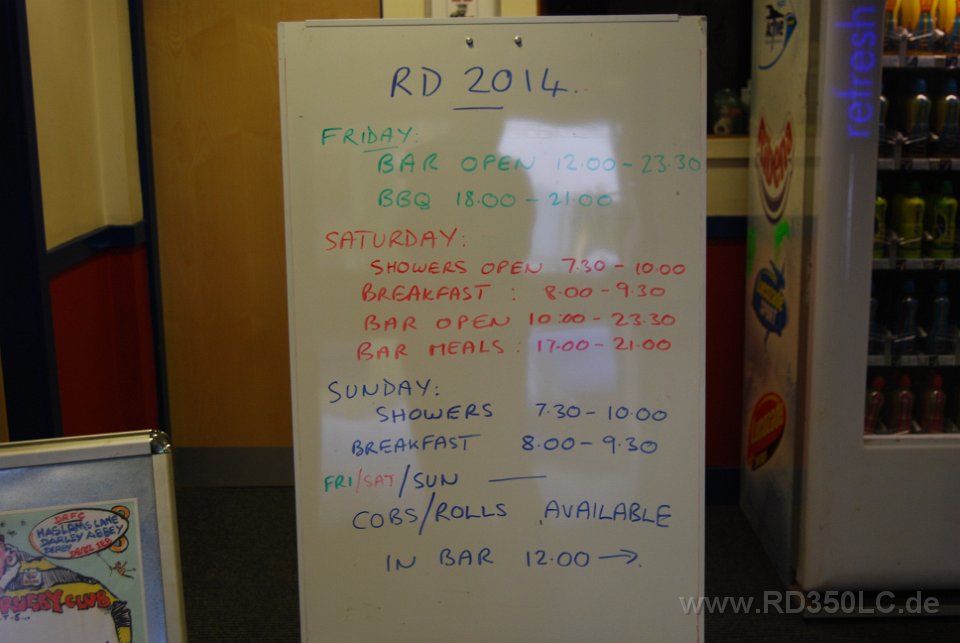 RD 2014.
FRIDAY:
BAR OPEN 12.00 - 23.30
BBQ 18.00 - 21.00
SATURDAY:
SHOWERS OPEN 7.30 - 10.00
BREAKFAST : 8.00 - 9.30
BAR OPEN 10:00 - 23.30
BAR MEALS : 17.00 - 21.00
SUNDAY:
SHOWERS 7.30 - 10.00
BREAKFAST 8.00 - 9.30
FRI/SAT/SUN —
COBS/ROLLS AVAILABLE
IN BAR 12.00 →.
refresh
DRFC
HASLAMS LANE
DARLEY ABBEY
DERBY
www.RD350LC.de